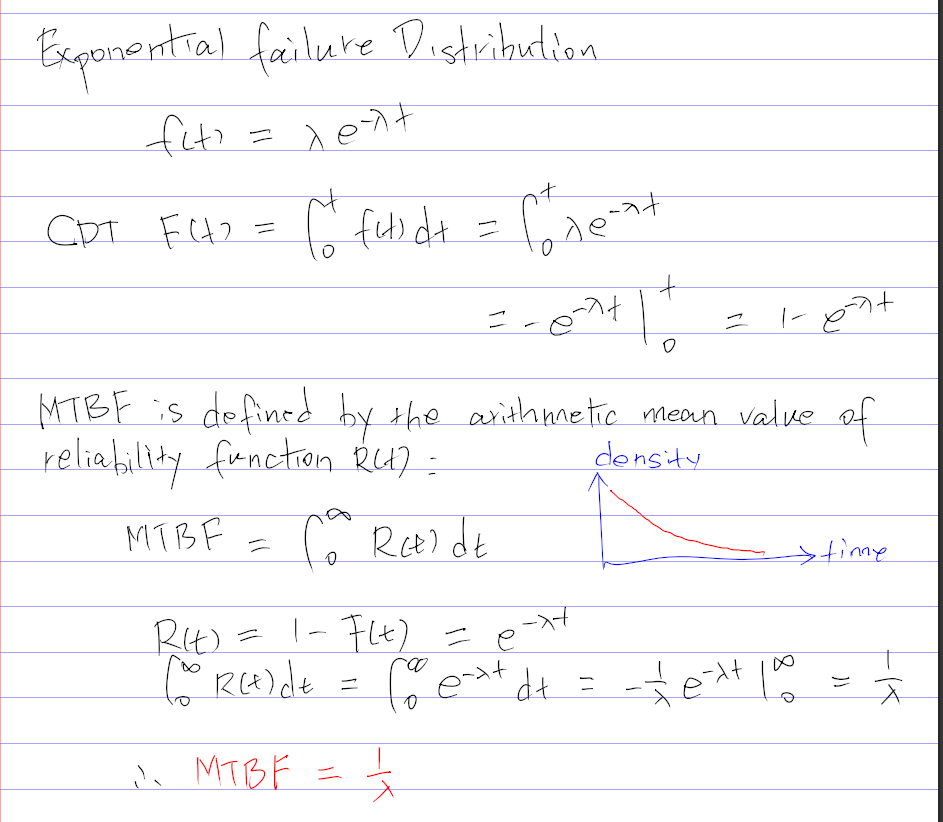 Exponential failure Distribution
f(t) = λe^{-λt}
CDT F(t) = ∫_0^t f(t)dt = ∫_0^t λe^{-λt}
= -e^{-λt} |_0^t = 1- e^{-λt}
MTBF is defined by the arithmetic mean value of
reliability function R(t) :
density
MTBF = ∫_0^∞ R(t) dt
time
R(t) = 1- F(t) = e^{-λt}
∫_0^∞ R(t)dt = ∫_0^∞ e^{-λt} dt = -\frac{1}{λ}e^{-λt} |_0^∞ = \frac{1}{λ}
∴ MTBF = \frac{1}{λ}